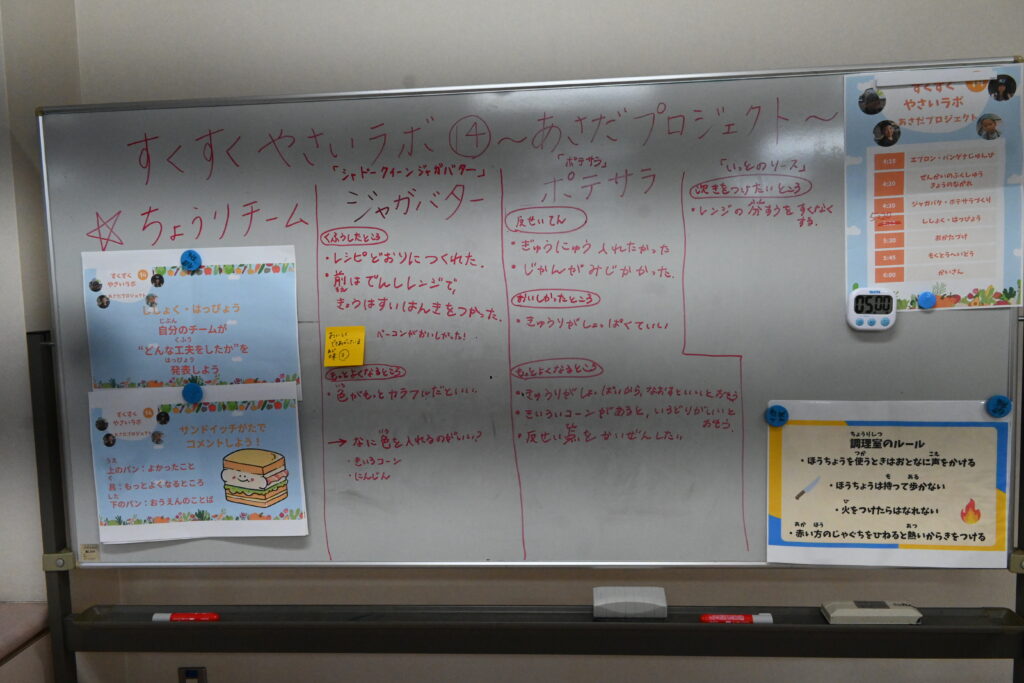 すくすくやさいラボ⑭～あさだプロジェクト～
☆ちょうりチーム
「シャドークイーンジャガバター」
ジャガバター
くふうしたところ
・レシピどおりにつくれた.
・前はでんしレンジで,
きょうはすいはんきをつかった.
おいしい
ベーコンがおいしかった!
もっとよくなるところ
・色がもっとカラフルだといい.
いろ
→なに色を入れるのがいい?
・きいろコーン
・にんじん
「ポテサラ」
ポテサラ
反せいてん
・ぎゅうにゅう入れたかった
・じかんがみじかかった.
おいしかったところ
・きゅうりがしょっぱくていい
もっとよくなるところ
・きゅうりがしょっぱいから,なおすといいとおもう
・きいろいコーンがあると,いろどりがいいと
おもう.
・反せい点をかいぜんしたい
「いっとのリース」
次きをつけたいところ
・レンジの分すうをすくなく
する.
すくすく
やさいラボ
あさだプロジェクト
4:15 エプロン・バンダナじゅんび
4:20 ぜんかいのふくしゅう
きょうのながれ
4:30 ジャガバタ・ポテサラづくり
ししょく・はっぴょう
5:30 おかたづけ
5:45 もくとうへいどう
6:00 かいさん
05:00
すくすく
やさいラボ
あさだプロジェクト
ししょく・はっぴょう
じぶん
自分のチームが
くふう
“どんな工夫をしたか”を
はっぴょう
発表しよう
すくすく
やさいラボ
あさだプロジェクト
サンドイッチがたで
コメントしよう！
うえ
上のパン：よかったこと
ぐ
具：もっとよくなるところ
した
下のパン：おうえんのことば
ちょうりしつ
調理室のルール
つか こえ
・ほうちょうを使うときはおとなに声をかける
も ある
・ほうちょうは持って歩かない
ひ
・火をつけたらはなれない
あか ほう あつ
・赤い方のじゃぐちをひねると熱いからきをつける